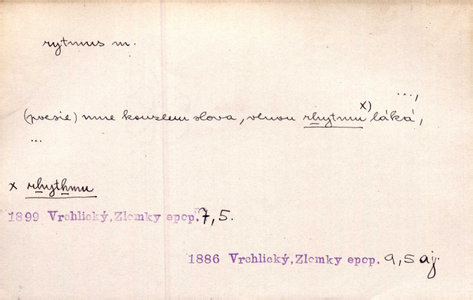 rytmus m.
...,
(poesie) mne kouzlem slova, vlnou rhytmu x) láká,
...
x rhythmu
1899 Vrchlický, Zlomky epop. 7, 5.
1886 Vrchlický, Zlomky epop. 9, 5 aj.